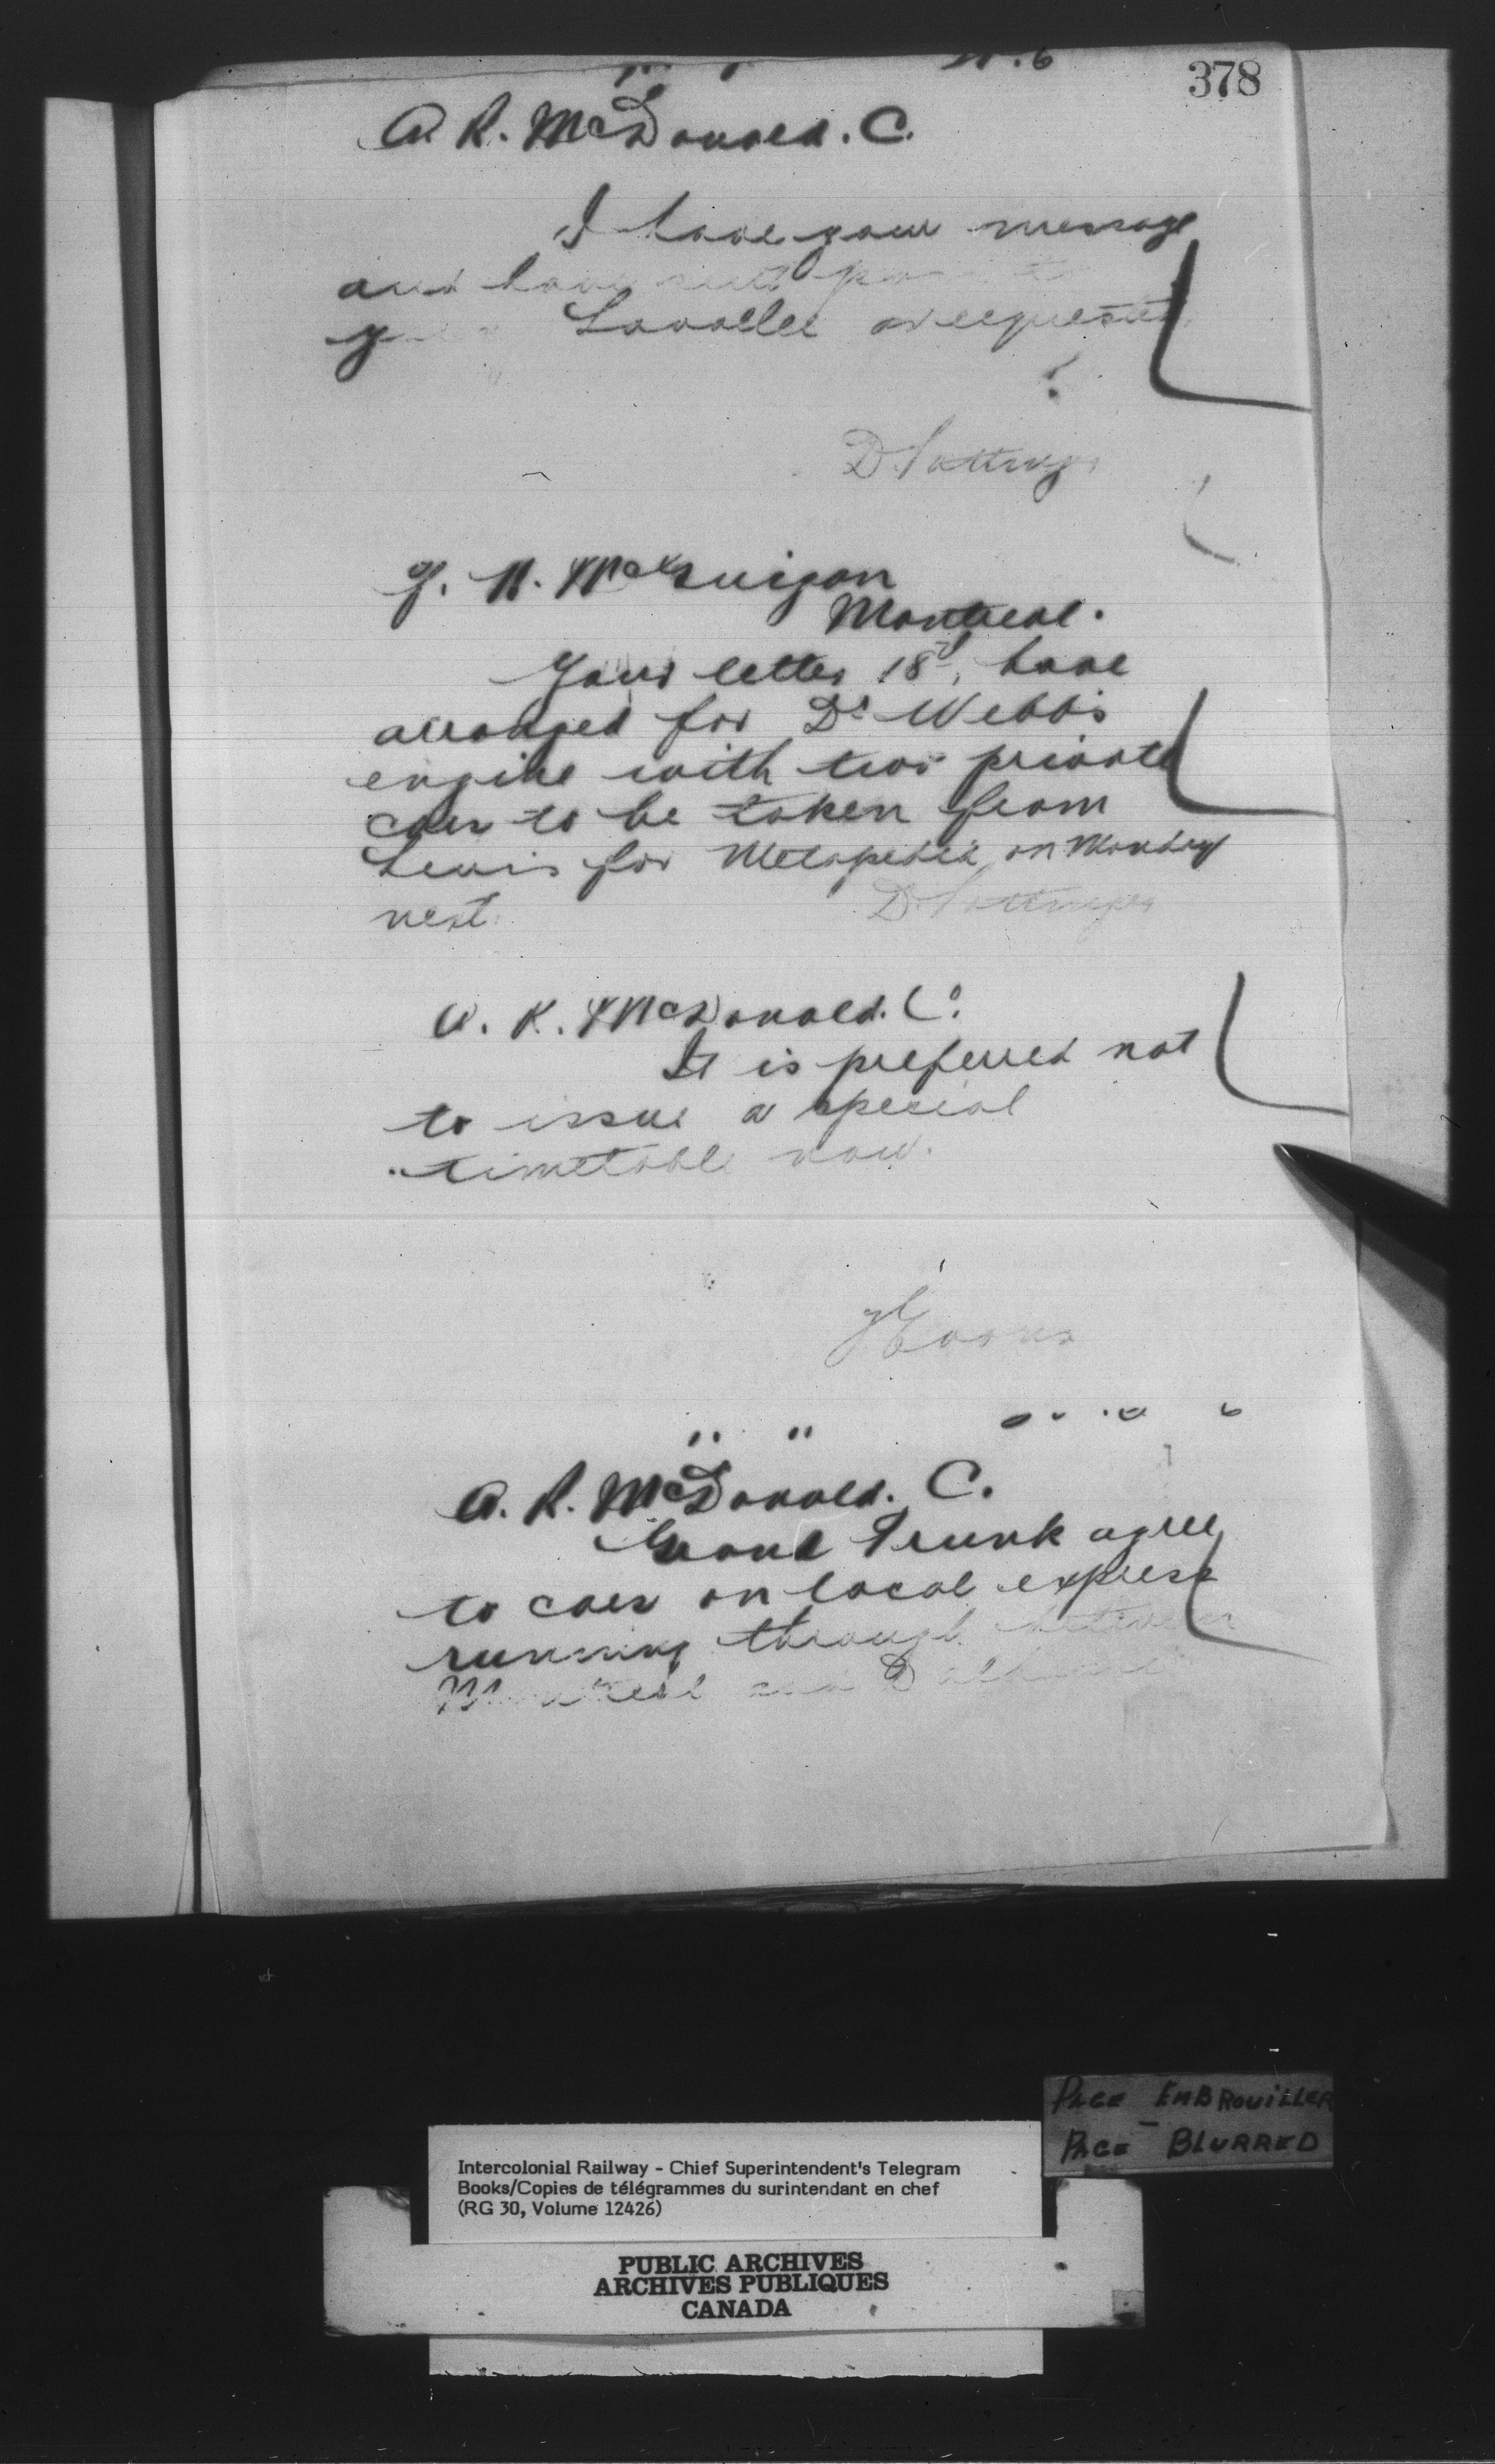 378
A. R. McDonald. C.
I have your message
and have sent
Lavallee as requested
D Pottinger
F. H. McGuigan
Montreal.
Your letter 18th, have
arranged for Dr Webb's
engine with two private
cars to be taken from
Levis for Metapedia on Monday
next.
D Pottinger
A. R. McDonald. C.
It is preferred not
to issue a special
timetable now.
A. R. McDonald. C.
Grand Trunk agree
to cars on local express
running through between
Montreal and
PAGE EMBROUILLER
PAGE BLURRED
Intercolonial Railway - Chief Superintendent's Telegram
Books/Copies de télégrammes du surintendant en chef
(RG 30, Volume 12426)
PUBLIC ARCHIVES
ARCHIVES PUBLIQUES
CANADA